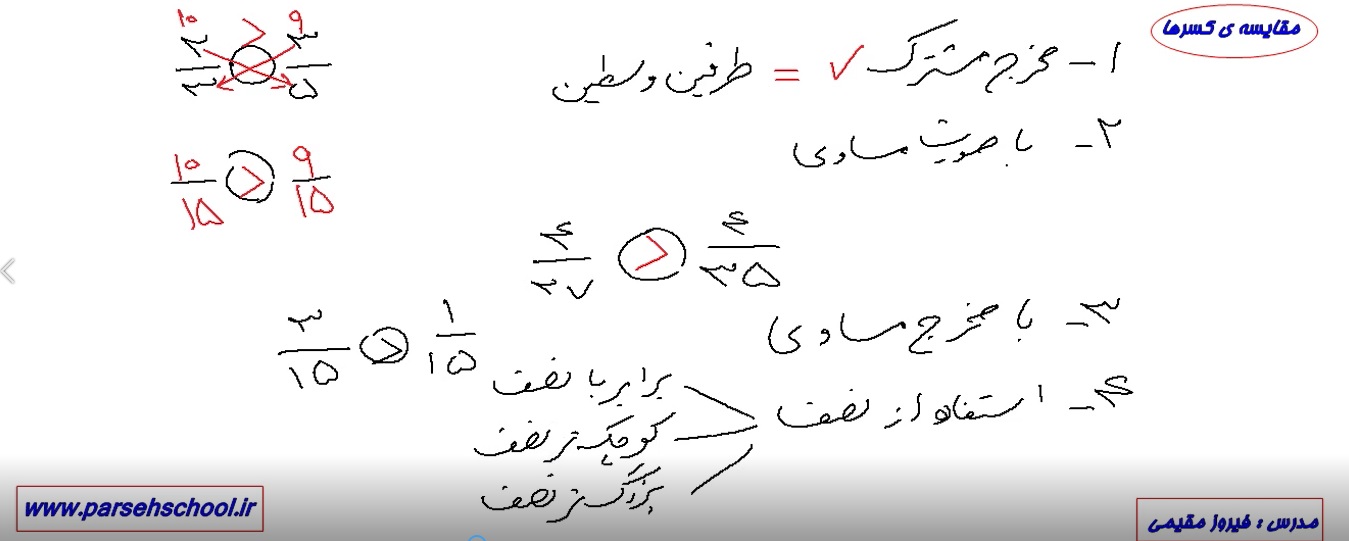 مقایسه ی کسرها
۱- مخرج مشترک ✓ = طرفین وسطین
۱۰ > ۹
۲/۳ ○ ۳/۵
۱۰/۱۵ > ۹/۱۵
۲- با صورت مساوی
۴/۲۷ > ۴/۳۵
۳- با مخرج مساوی
۳/۱۵ > ۱/۱۵
۴- استفاده از نصف
برابر با نصف
کوچک تر نصف
بزرگ تر نصف
www.parsehschool.ir
مدرس : فیروز مقیمی